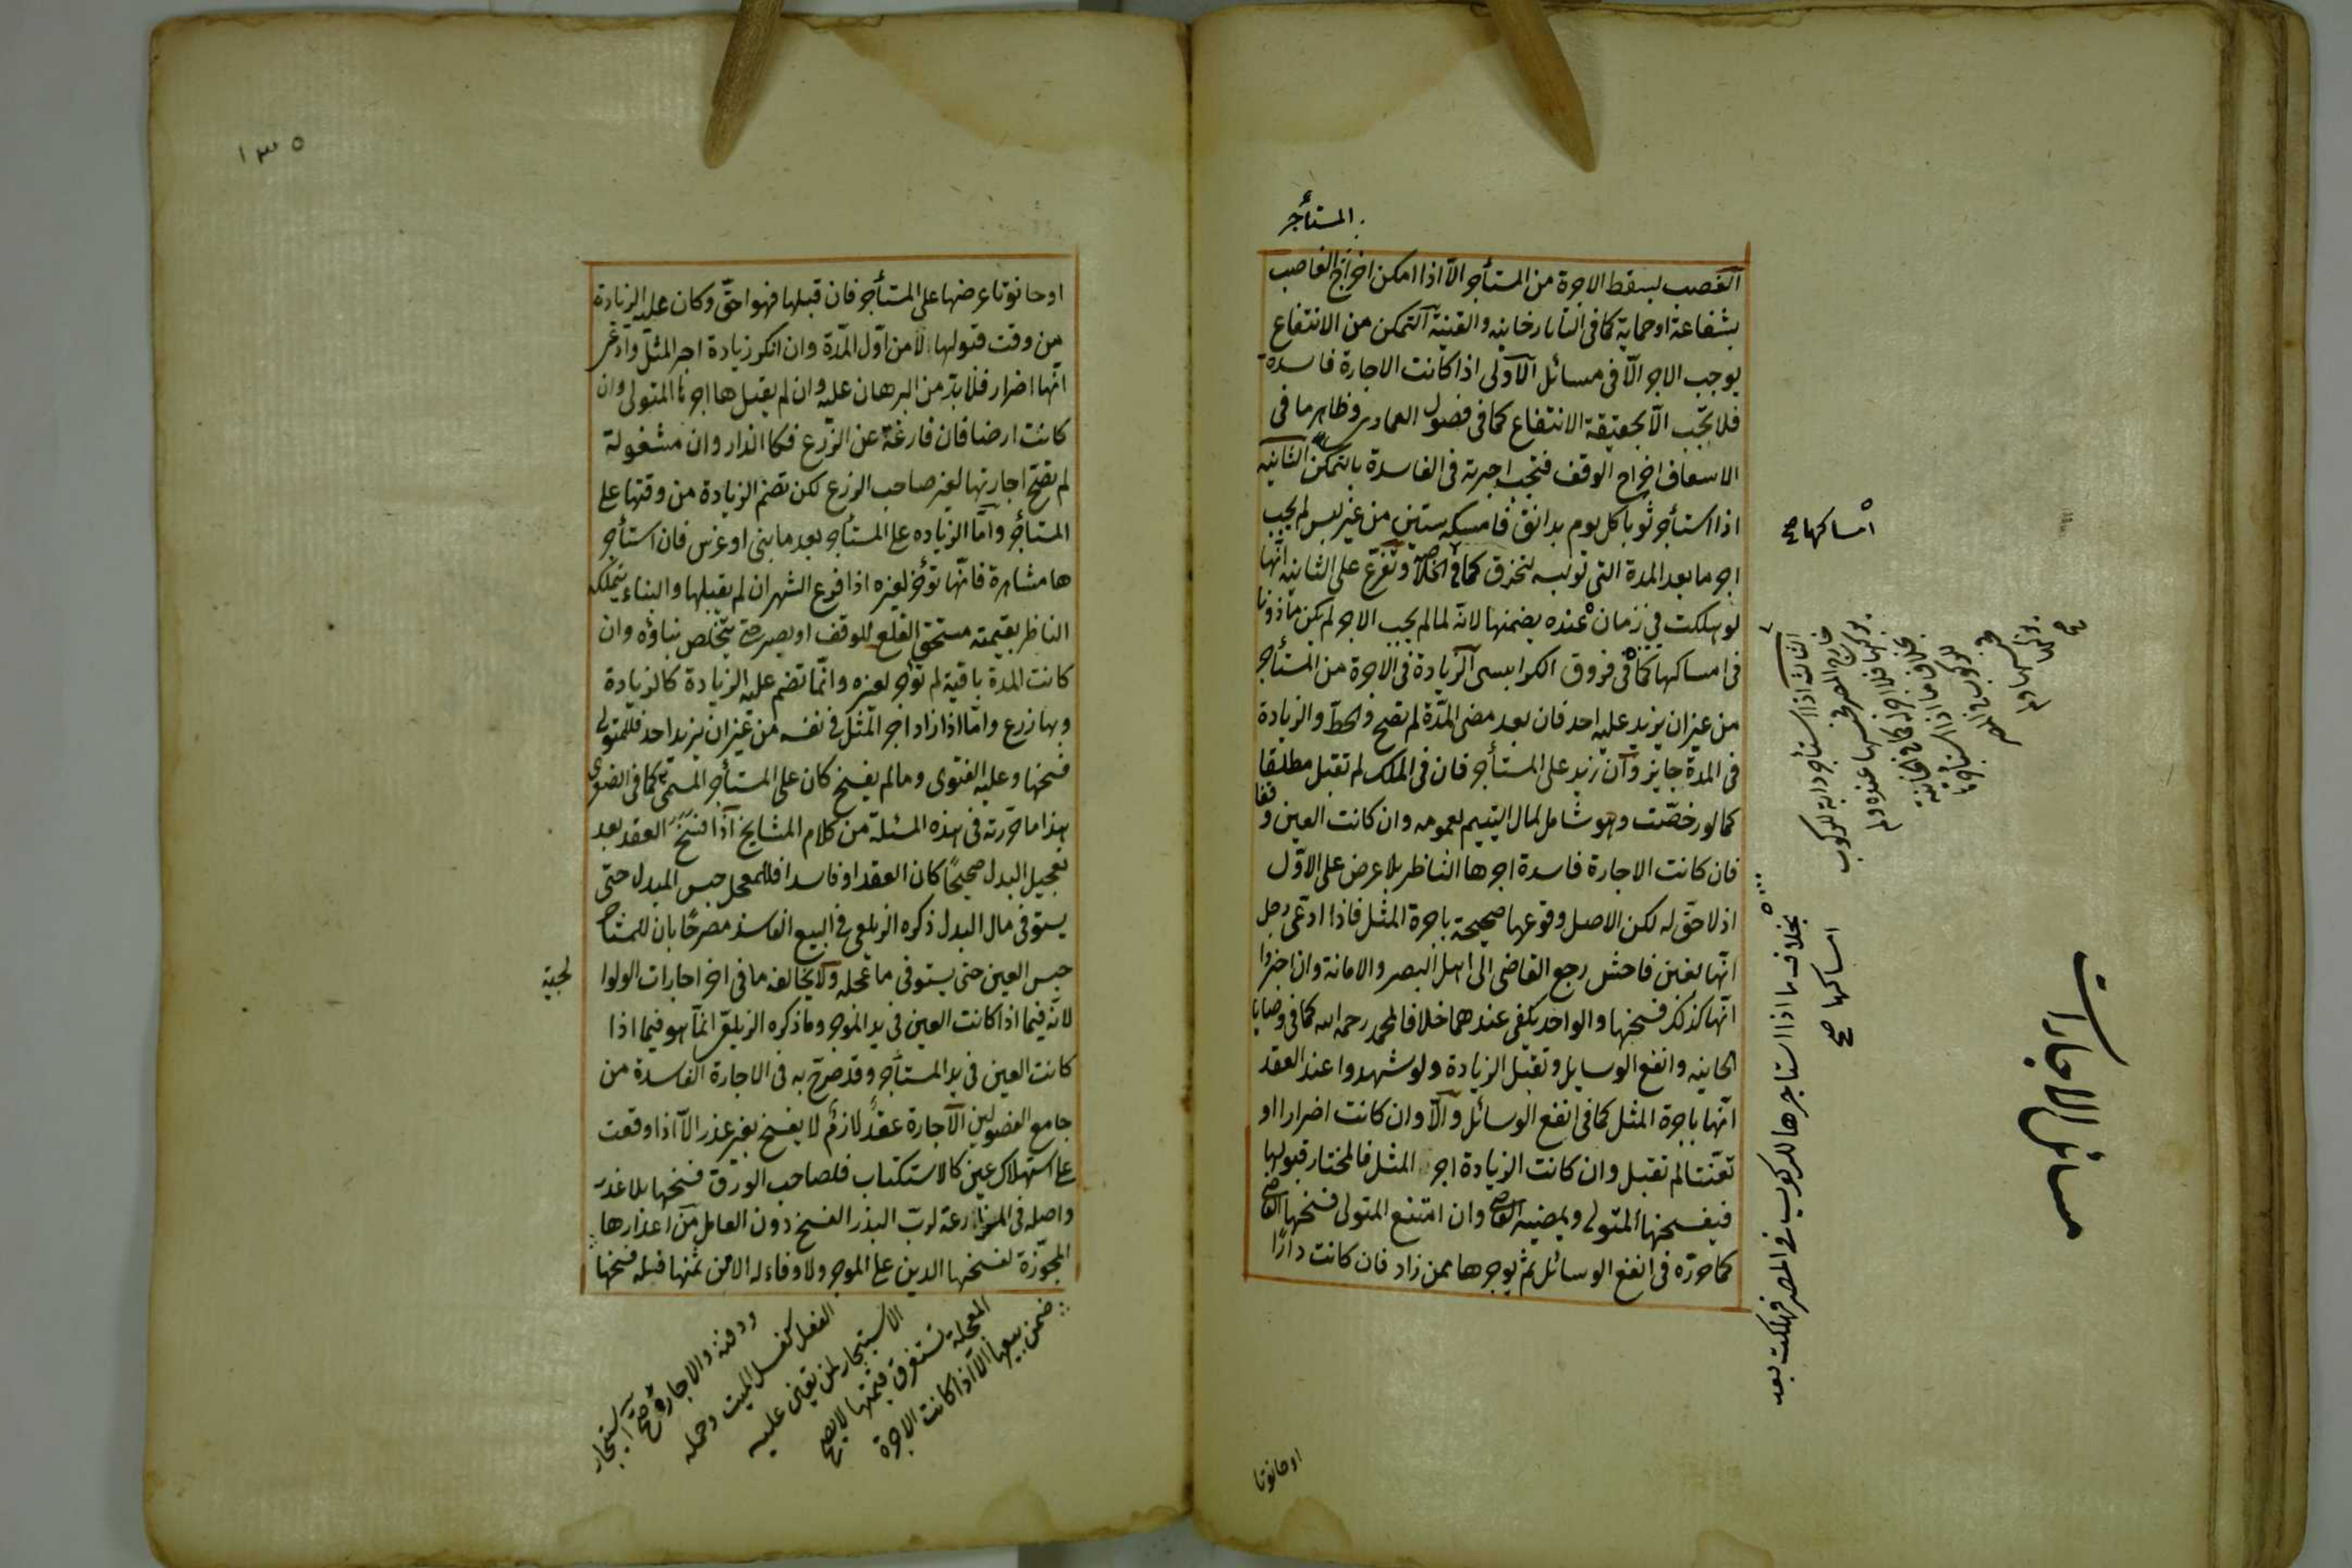 المستأجر
الغصب يسقط الاجرة من المستأجر الا اذا امكن اخراج الغاصب
بشفاعة او حماية كما فى التاتارخانيه والقنية التمكن من الانتفاع
يوجب الاجر الّا فى مسائل الاولى اذا كانت الاجارة فاسدة
فلا يجب الّا بحقيقة الانتفاع كما فى فصول العمادى وظاهر ما فى
الاسعاف اخراج الوقف فتجب اجرته فى الفاسدة بالتمكن الثانيه
اذا استأجر ثوبا كل يوم بدانق فامسكه سنين من غير لبس لم يجب
اجر ما بعد المدة التى لو لبسه لتخرق كما فى الخلاصة وتفرع على الثانيه انها
لو هلكت فى زمان عنده يضمنها لانه لما لم يجب الاجر لم يكن مأذونا
فى امساكها كما فى فروق الكرابيسى الزيادة فى الاجرة من المستأجر
من غير ان يزيد عليه احد فان بعد مضى المدّة لم تصح والحطّ والزيادة
فى المدة جايز وان زيد على المستأجر فان فى الملك لم تقبل مطلقا
كما لو رخصت وهو شامل لمال اليتيم بعمومه وان كانت العين وقفا
فان كانت الاجارة فاسدة اجرها الناظر بلا عرض على الاوّل
اذ لا حقّ له لكن الاصل وقوعها صحيحة باجرة المثل فاذا ادّعى رجل
انّها بغبن فاحش رجع القاضى الى اهل البصر والامانة وان اخبروا
انّها كذلك فسخها والواحد يكفى عندهما خلافا لمحمد رحمه الله كما فى وصايا
الخانيه وانفع الوسايل وتقبل الزيادة ولو شهدوا عند العقد
انّها باجرة المثل كما فى انفع الوسائل والّا وان كانت اضرارا او
تعنّتا لم تقبل وان كانت الزيادة اجر المثل فالمختار قبولها
فيفسخها المتولى ويمضيه القاضى وان امتنع المتولى فسخها القاضى
كما حررّه فى انفع الوسائل ثم يوجرها ممن زاد فان كانت دارًا
او حانوتا
امساكها صح
الثالثه اذا استأجر دابة للركوب
خارج المصر فحبسها عنده ولم
يركبها فلا اجر كما فى الخانية
بخلاف ما اذا استأجرها
للركوب فى المصر
فحبسها ولم
يركبها
صح
بخلاف ما اذا استاجرها للركوب فى المصر فهلكت بعد
امساكها صح
مسائل الاجارات
١٣٥
او حانوتا عرضها على المستأجر فان قبلها فهو احقّ وكان عليه الزيادة
من وقت قبولها لا من اوّل المدّة وان انكر زيادة اجر المثل وادّعى
انّها اضرار فلا بدّ من البرهان عليه وان لم يقبلها اجرها المتولى وان
كانت ارضا فان فارغة عن الزّرع فكالدار وان مشغولة
لم تصح اجارتها لغير صاحب الزرع لكن تضم الزيادة من وقتها على
المستأجر وامّا الزياده على المستأجر بعد ما بنى او غرس فان استأجر
ها مشاهرة فانّها تؤجر لغيره اذا فرغ الشهر ان لم يقبلها والبناء يتملكه
الناظر بقيمته مستحق القلع للوقف او يصبر حتى يتخلص بناؤه وان
كانت المدة باقية لم تؤجر لغيره وانّما تضم عليه الزيادة كالزيادة
وبها زرع وامّا اذا زاد اجر المثل فى نفسه من غير ان يزيد احد فللمتولى
فسخها وعليه الفتوى وما لم يفسخ كان على المستأجر المسمّى كما فى الصغرى
هذا ما حررته فى هذه المسئلة من كلام المشايخ اذا فسخ العقد بعد
تعجيل البدل صحيحًا كان العقد او فاسدا فللمعجل حبس المبدل حتّى
يستوفى مال البدل ذكره الزيلعى فى البيع الفاسد مصرحًا بان للمستأجر
حبس العين حتى يستوفى ما عجله ولا يخالفه ما فى اخر اجارات الولوا
لجية
لانّه فيما اذا كانت العين فى يد الموجر وما ذكره الزيلعى انّما هو فيما اذا
كانت العين فى يد المستأجر وقد صرّح به فى الاجارة الفاسدة من
جامع الفصولين الاجارة عقد لازم لا يفسخ بغير عذر الّا اذا وقعت
على استهلاك عين كالاستكتاب فلصاحب الورق فسخها بلا عذر
واصله فى المزارعة لربّ البذر الفسخ دون العامل من اعذارها
المجوّزة لفسخها الدين على الموجر ولا وفاء له الا من ثمنها فيله فسخها
ضمن بيعها الا اذا كانت الاجرة
المعجلة تستغرق قيمتها لا يصح
الاستيجار لمن تعين عليه
الفعل كغسل الميت وحمله
ودفنه والاجاره صح استيجار